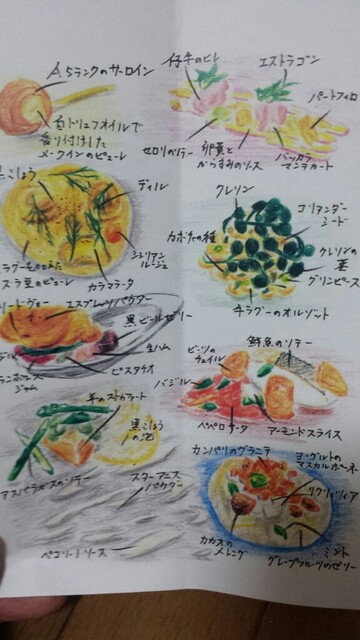 A5ランクのサーロイン
トリュフオイルで
香り付けした
メークインのピューレ
黒こしょう
ディル
シシリアン
ルージュ
カラマラータ
ラグーを加えた
豆のピューレ
エスプレッソパウダー
黒ビールゼリー
生ハム
ピスタチオ
ジャム
黒こしょう
の泡
アスパラガスのソテー
スターアニス
パウダー
ペコリーノソース
仔牛のヒレ
エストラゴン
パートフィロ
セロリのソテー
卵黄と
からすみのソース
バッカラ
マンテカート
クレソン
コリアンダー
シード
カボチャの種
クレソンの
茎
グリンピース
チラグーのオルゾット
ビーツの
チュイル
鮮魚のソテー
バジル
ペペロナータ
アーモンドスライス
カンパリのグラニテ
ヨーグルトの
マスカルポーネ
リクイリツィア
カカオの
メレンゲ
ミント
グレープフルーツのゼリー